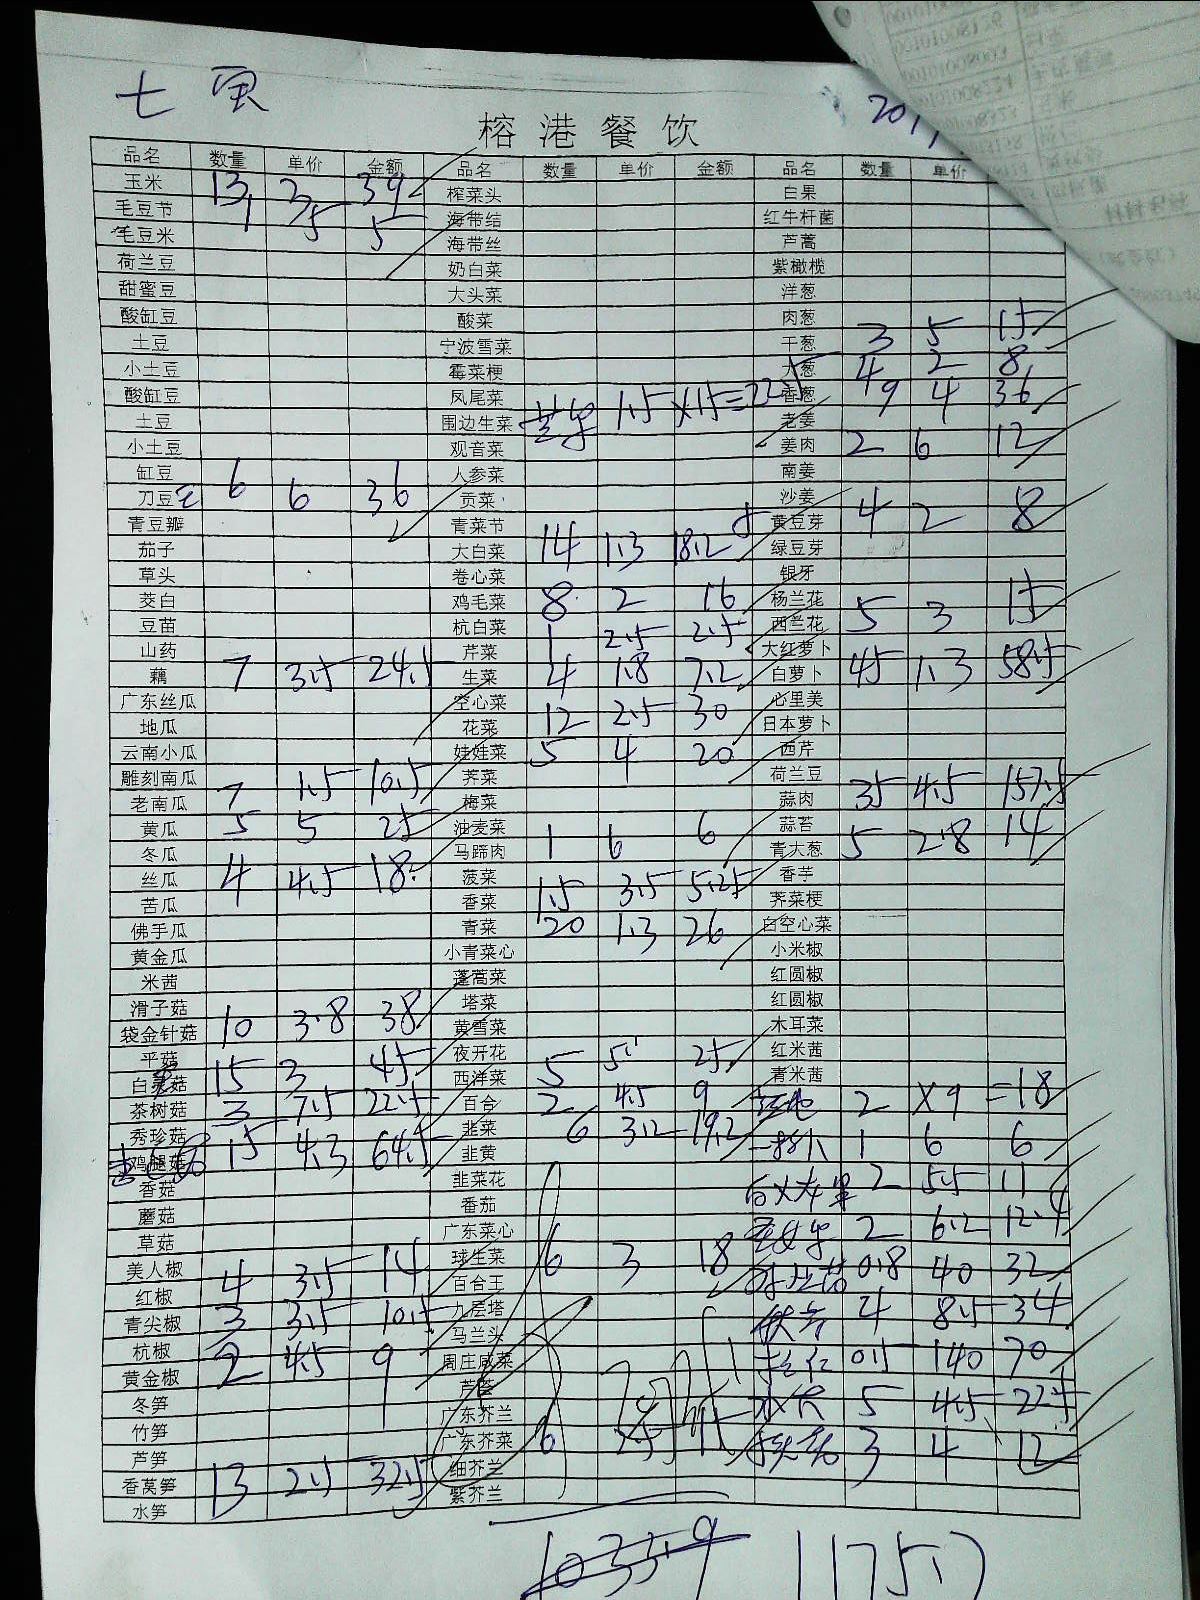 七
榕港餐饮
品名 数量 单价 金额 品名 数量 单价 金额 品名 数量 单价
玉米 13 3 39 榨菜头 白果
毛豆节 1 5 5 海带结 红牛杆菌
毛豆米 海带丝 芦蒿
荷兰豆 奶白菜 紫橄榄
甜蜜豆 大头菜 洋葱
酸缸豆 酸菜 肉葱
土豆 宁波雪菜 干葱 3 5 15
小土豆 霉菜梗 大葱 4 2 8
酸缸豆 凤尾菜 香葱 9 4 36
土豆 围边生菜 1.5 ×15=22.5 老姜
小土豆 观音菜 姜肉 2 6 12
缸豆 人参菜 南姜
刀豆 6 6 36 贡菜 沙姜
青豆瓣 青菜节 黄豆芽 4 2 8
茄子 大白菜 14 1.3 18.2 绿豆芽
草头 卷心菜 银牙
茭白 鸡毛菜 8 2 16 杨兰花
豆苗 杭白菜 1 2.5 2.5 西兰花 5 3 15
山药 芹菜 大红萝卜
藕 7 3.5 24.5 生菜 4 1.8 7.2 白萝卜 45 1.3 58.5
广东丝瓜 空心菜 心里美
地瓜 花菜 12 2.5 30 日本萝卜
云南小瓜 娃娃菜 5 4 20 西芹
雕刻南瓜 荠菜 荷兰豆
老南瓜 7 1.5 10.5 梅菜 蒜肉 35 4.5 157.5
黄瓜 5 5 25 油麦菜 蒜苔
冬瓜 马蹄肉 1 6 6 青大葱 5 2.8 14
丝瓜 4 4.5 18 菠菜 香芋
苦瓜 香菜 1.5 3.5 5.25 荠菜梗
佛手瓜 青菜 20 1.3 26 白空心菜
黄金瓜 小青菜心 小米椒
米茜 蓬蒿菜 红圆椒
滑子菇 塔菜 红圆椒
袋金针菇 10 3.8 38 黄雪菜 木耳菜
平菇 夜开花 红米茜
白灵菇 15 3 45 西洋菜 5 5 25 青米茜
茶树菇 3 7.5 22.5 百合 2 4.5 9 2 ×9 =18
秀珍菇 韭菜 6 3.2 19.2 1 6 6
鸡腿菇 15 4.3 64.5 韭黄
香菇 韭菜花 2 5.5 11
蘑菇 番茄
草菇 广东菜心 2 6.2 12.4
美人椒 球生菜 6 3 18
红椒 4 3.5 14 百合王 0.8 40 32
青尖椒 3 3.5 10.5 九层塔 4 8.5 34
杭椒 马兰头
黄金椒 2 4.5 9 周庄咸菜 0.5 140 70
冬笋 芦荟
竹笋 广东芥兰 5 4.5 22.5
芦笋 广东芥菜 6 3 4 12
香莴笋 13 2.5 32.5 细芥兰
水笋 紫芥兰
1035.9 1175.7